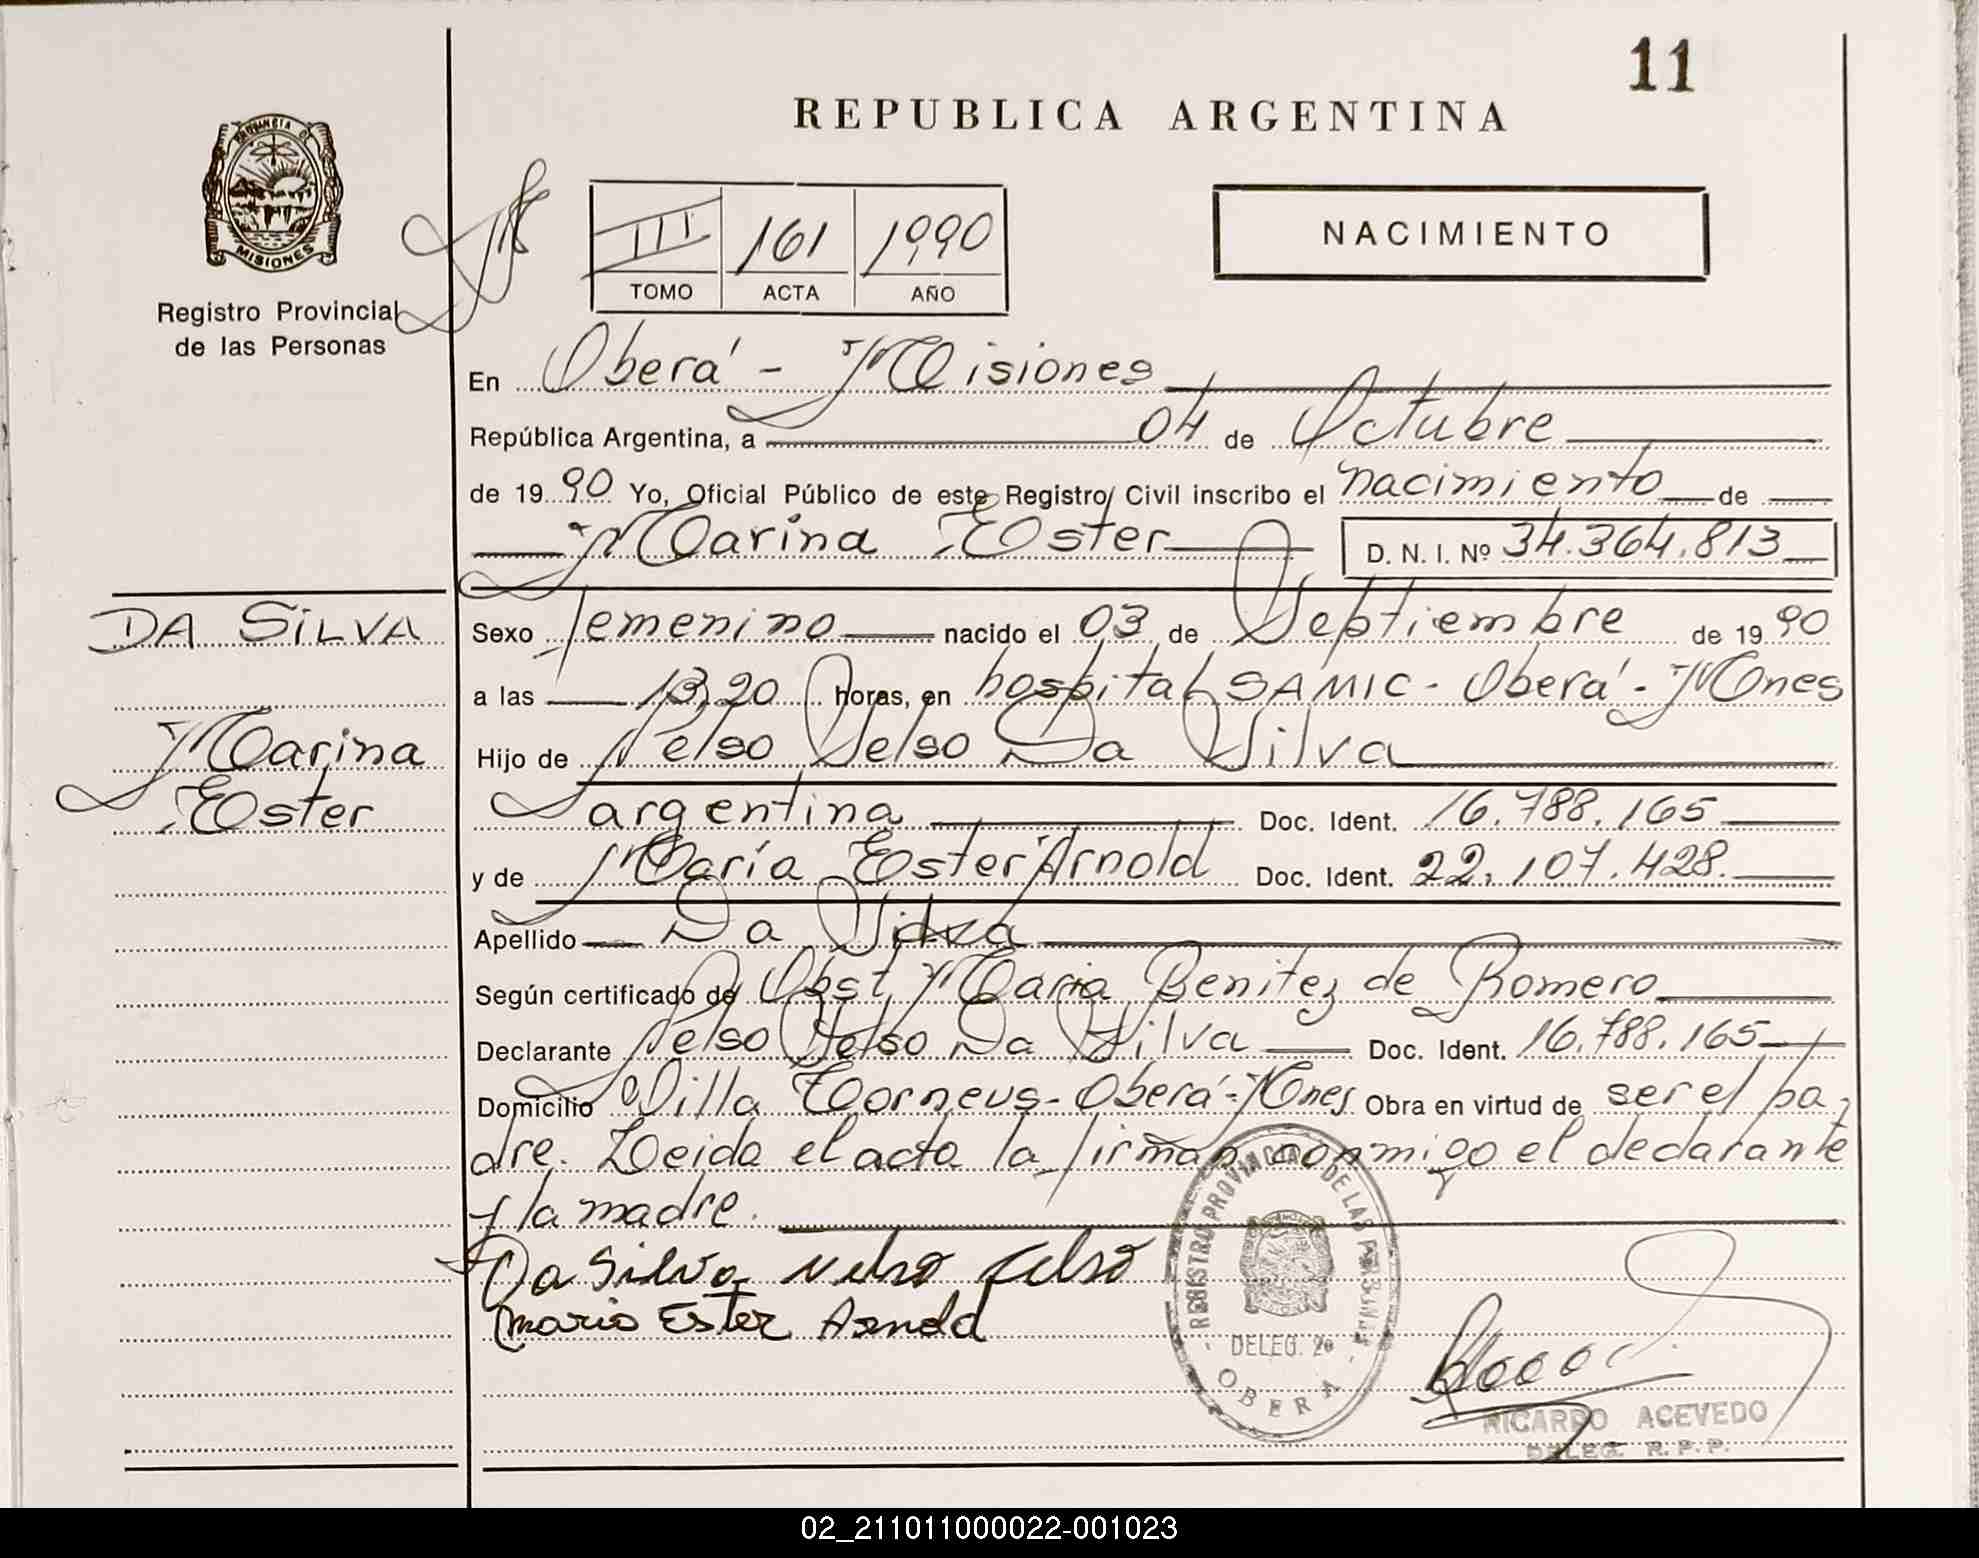 11
REPUBLICA ARGENTINA
PROVINCIA DE
MISIONES
Registro Provincial
de las Personas
III 161 1990
TOMO ACTA AÑO
NACIMIENTO
En Oberá - Misiones
República Argentina, a 04 de Octubre
de 1990 Yo, Oficial Público de este Registro Civil inscribo el nacimiento de
Marina Ester D. N. I. Nº 34.364.813
DA SILVA
Marina
Ester
Sexo femenino nacido el 03 de Septiembre de 1990
a las 13,20 horas, en hospital SAMIC - Oberá - Mnes
Hijo de Nelso Selso Da Silva
argentina Doc. Ident. 16.788.165
y de María Ester Arnold Doc. Ident. 22.107.428.
Apellido Da Silva
Según certificado de Obst. Maria Benitez de Romero
Declarante Nelso Selso Da Silva Doc. Ident. 16.788.165
Domicilio Villa Torneus - Oberá - Mnes Obra en virtud de ser el pa
dre. Leida el acta la firman conmigo el declarante
y la madre.
Da Silva Nelso Celso
Maria Ester Arnold
REGISTRO PROVINCIAL DE LAS PERSONAS
DELEG. 20
OBERA
RICARDO ACEVEDO
DELEG. R. P. P.
02_211011000022-001023